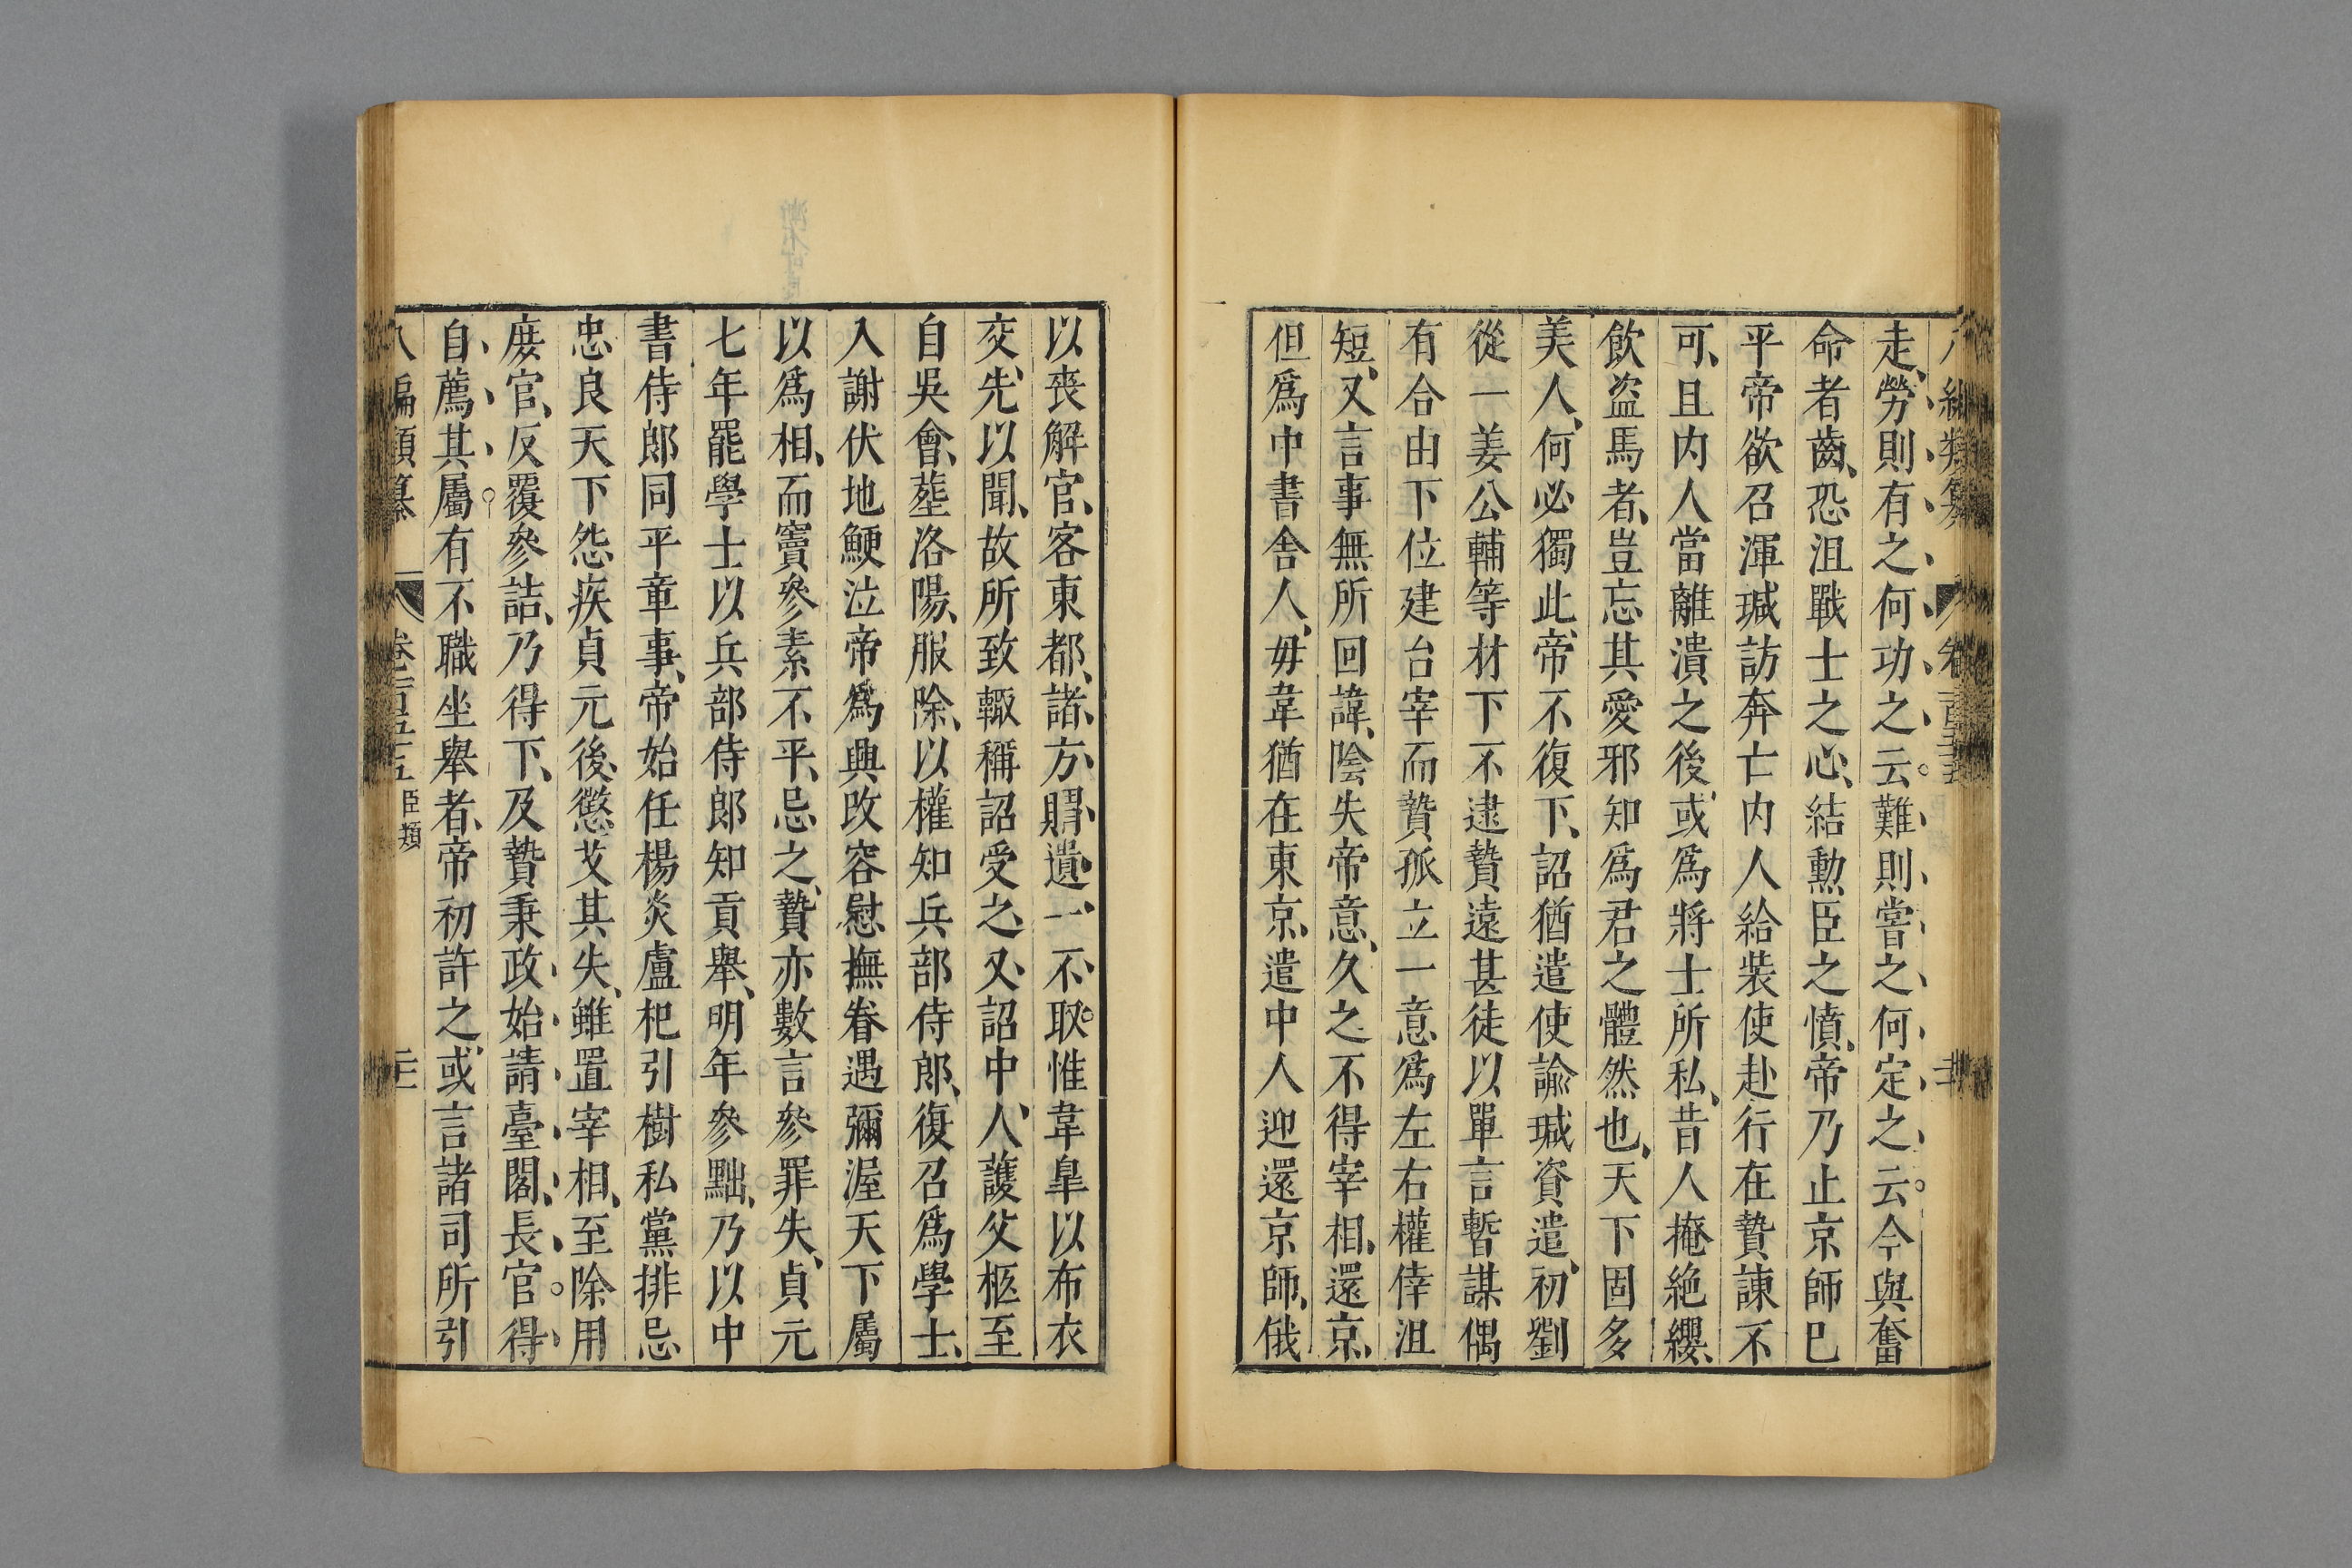 走、勞則有之何功之云。難則嘗之何定之云。今與奮
命者齒、恐沮戰士之心、結勲臣之憤、帝乃止京師已
平帝欲召渾瑊訪奔亡内人給裝使赴行在贄諫不
可、且内人當離潰之後、或爲將士所私、昔人掩絶纓、
飲盗馬者、豈忘其愛邪知爲君之體然也、天下固多
美人、何必獨此、帝不復下、詔猶遣使諭瑊資遣、初劉
從一姜公輔等材下不逮贄遠甚徒以單言暫謀偶
有合由下位建台宰而贄孤立一意爲左右權倖沮
短、又言事無所回諱、陰失帝意、久之不得宰相、還京、
但爲中書舍人、毋韋猶在東京、遣中人迎還京師、俄
以䘮解官、客東都、諸方賵遺一不取惟韋臯以布衣
交、先以聞、故所致輙稱詔受之、又詔中人護父柩至
自吳會、塟洛陽、服除、以權知兵部侍郎、復召爲學士、
入謝伏地鯁泣帝爲興改容慰撫眷遇彌渥天下屬
以爲相、而竇參素不平、忌之、贄亦數言參罪失、貞元
七年罷學士以兵部侍郎知貢舉、明年參黜、乃以中
書侍郎同平章事、帝始任楊炎盧杞引樹私黨排忌
忠良天下怨疾貞元後、懲艾其失、雖置宰相、至除用
庻官、反覆參詰、乃得下、及贄秉政始請臺閣長官。得
自薦其屬有不職坐舉者、帝初許之、或言諸司所引
八編類纂　卷一百五十五　臣類　二十一